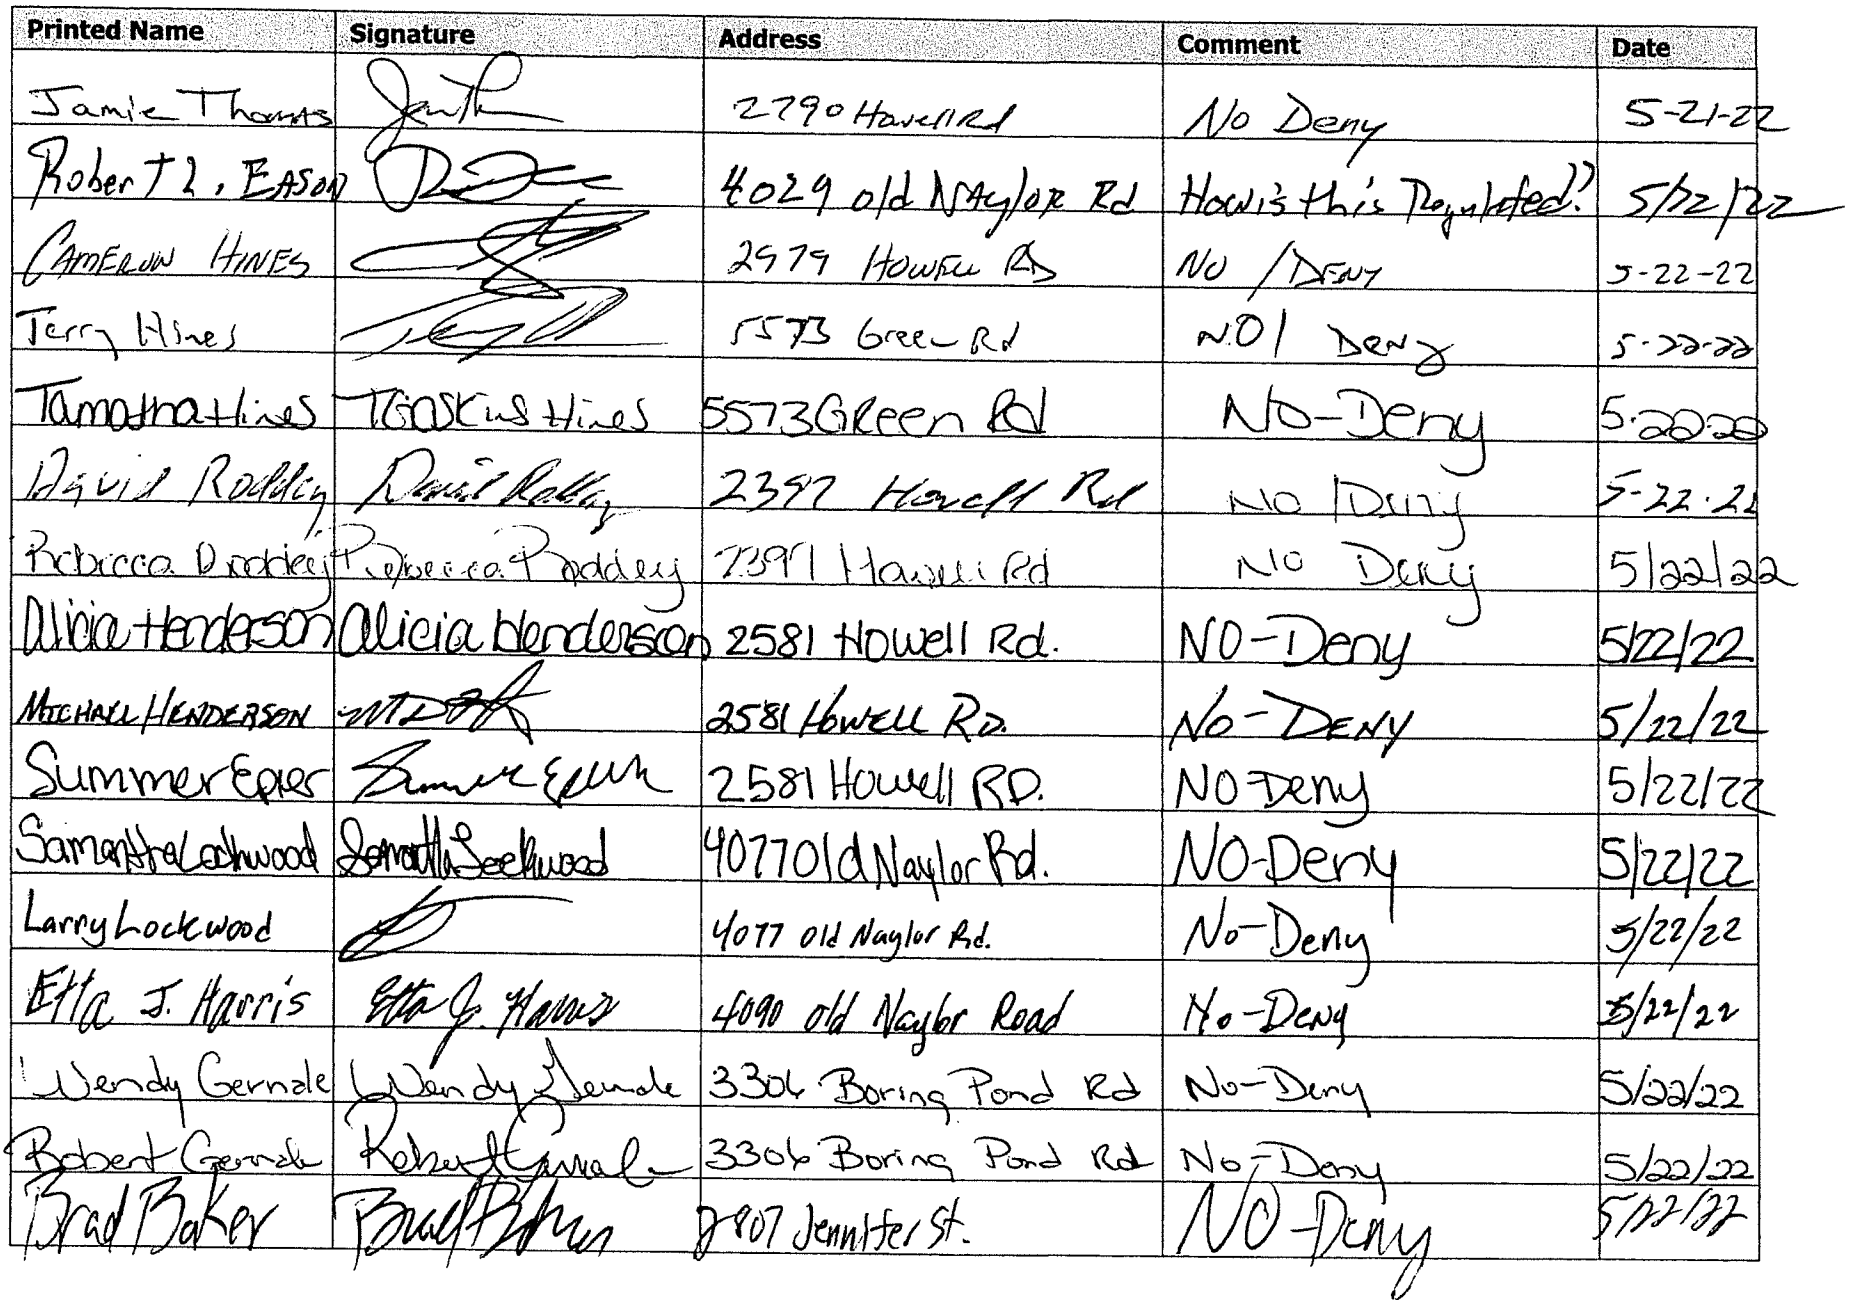 Printed Name Signature Address Comment Date
Jamie Thomas 2790 Howell Rd No Deny 5-21-22
Robert L. EASON 4029 old NAylOR Rd How is this Regulated?? 5/22/22
CAMERON HINES 2979 HOWELL RD NO / DENY 5-22-22
Terry Hines 5573 Green Rd NO / Deny 5-22-22
Tamatha Hines TGaskins Hines 5573 GReen Rd NO-Deny 5-22-22
David Roddey David Roddey 2397 Howell Rd NO / Deny 5-22-22
Rebecca Roddey Rebecca Roddey 2397 Howell Rd No Deny 5/22/22
Alicia Henderson Alicia Henderson 2581 Howell Rd. NO-Deny 5/22/22
MICHAEL HENDERSON 2581 HOWELL RD. NO-DENY 5/22/22
Summer Epler Summer Epler 2581 Howell RD. NO-Deny 5/22/22
Samantha Lockwood Samantha Lockwood 4077 Old Naylor Rd. NO-Deny 5/22/22
Larry Lockwood 4077 Old Naylor Rd. No-Deny 5/22/22
Etta J. Harris Etta J. Harris 4090 old Naylor Road No-Deny 5/22/22
Wendy Gernale Wendy Gernale 3306 Boring Pond Rd No-Deny 5/22/22
Robert Gernale Robert Gernale 3306 Boring Pond Rd No-Deny 5/22/22
Brad Baker Brad Baker 2807 Jennifer St. NO-Deny 5/22/22